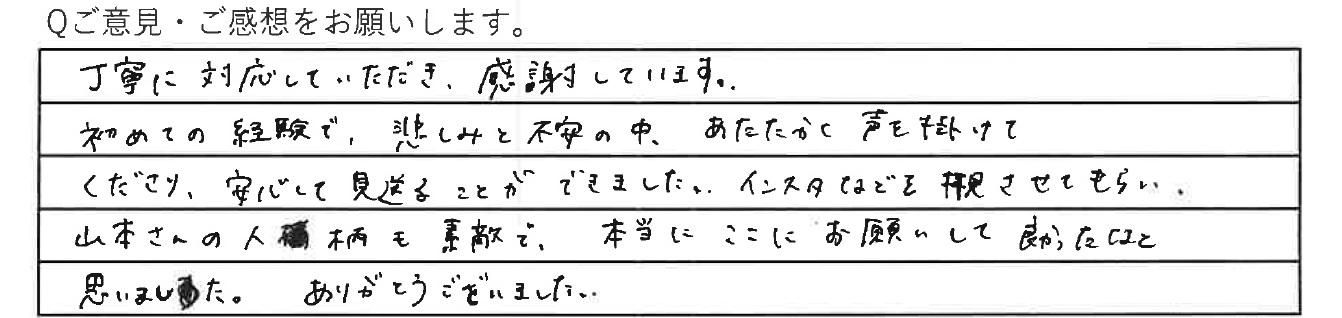 Qご意見・ご感想をお願いします。
丁寧に対応していただき、感謝しています。
初めての経験で、悲しみと不安の中、あたたかく声を掛けて
くださり、安心して見送ることができました。インスタなどを拝見させてもらい、
山本さんの人柄も素敵で、本当にここにお願いして良かったなと
思いました。ありがとうございました。